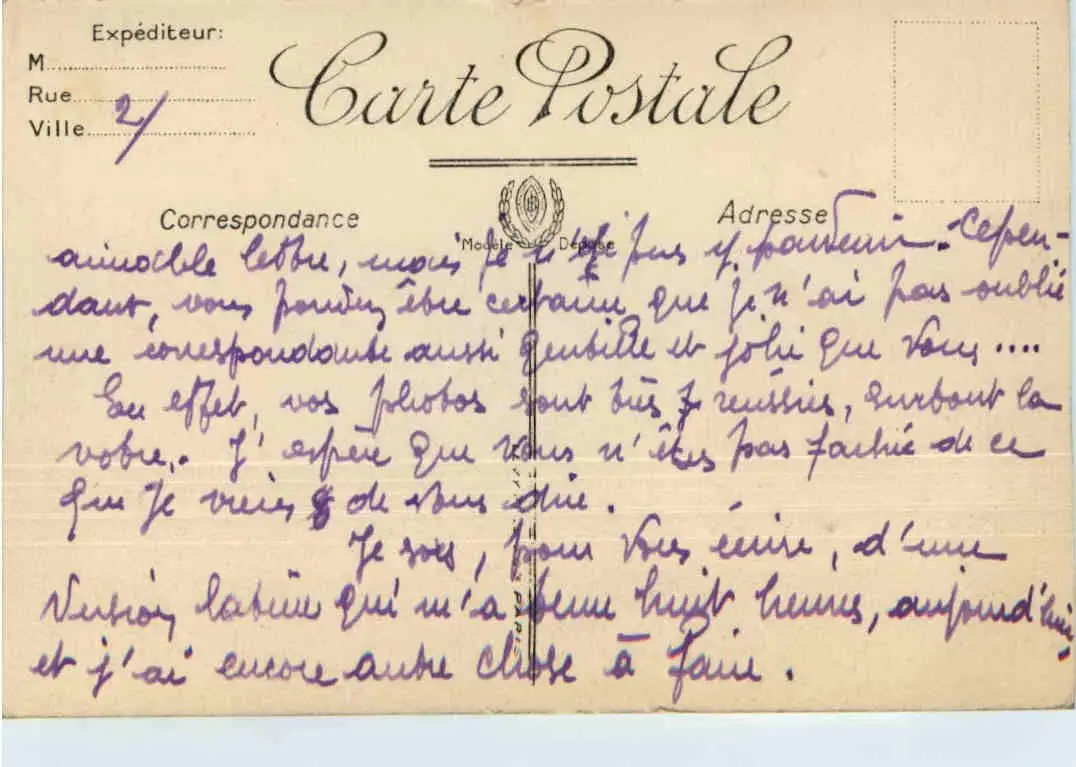 Expéditeur:
M
Rue
Ville
2/
Carte Postale
Correspondance
Adresse
Modèle Déposé
aimable lettre, mais je n'ai pus y parvenir. Cepen-
dant, vous pouvez être certaine que je n'ai pas oublié
une correspondante aussi gentille et jolie que vous ....
En effet, vos photos sont très réussies, surtout la
votre. J'espère que vous n'êtes pas fachée de ce
que je viens de vous dire.
Je sors, pour vous écrire, d'une
version latine qui m'a tenu huit heures, aujourd'hui,
et j'ai encore autre chose à faire.
PARIS